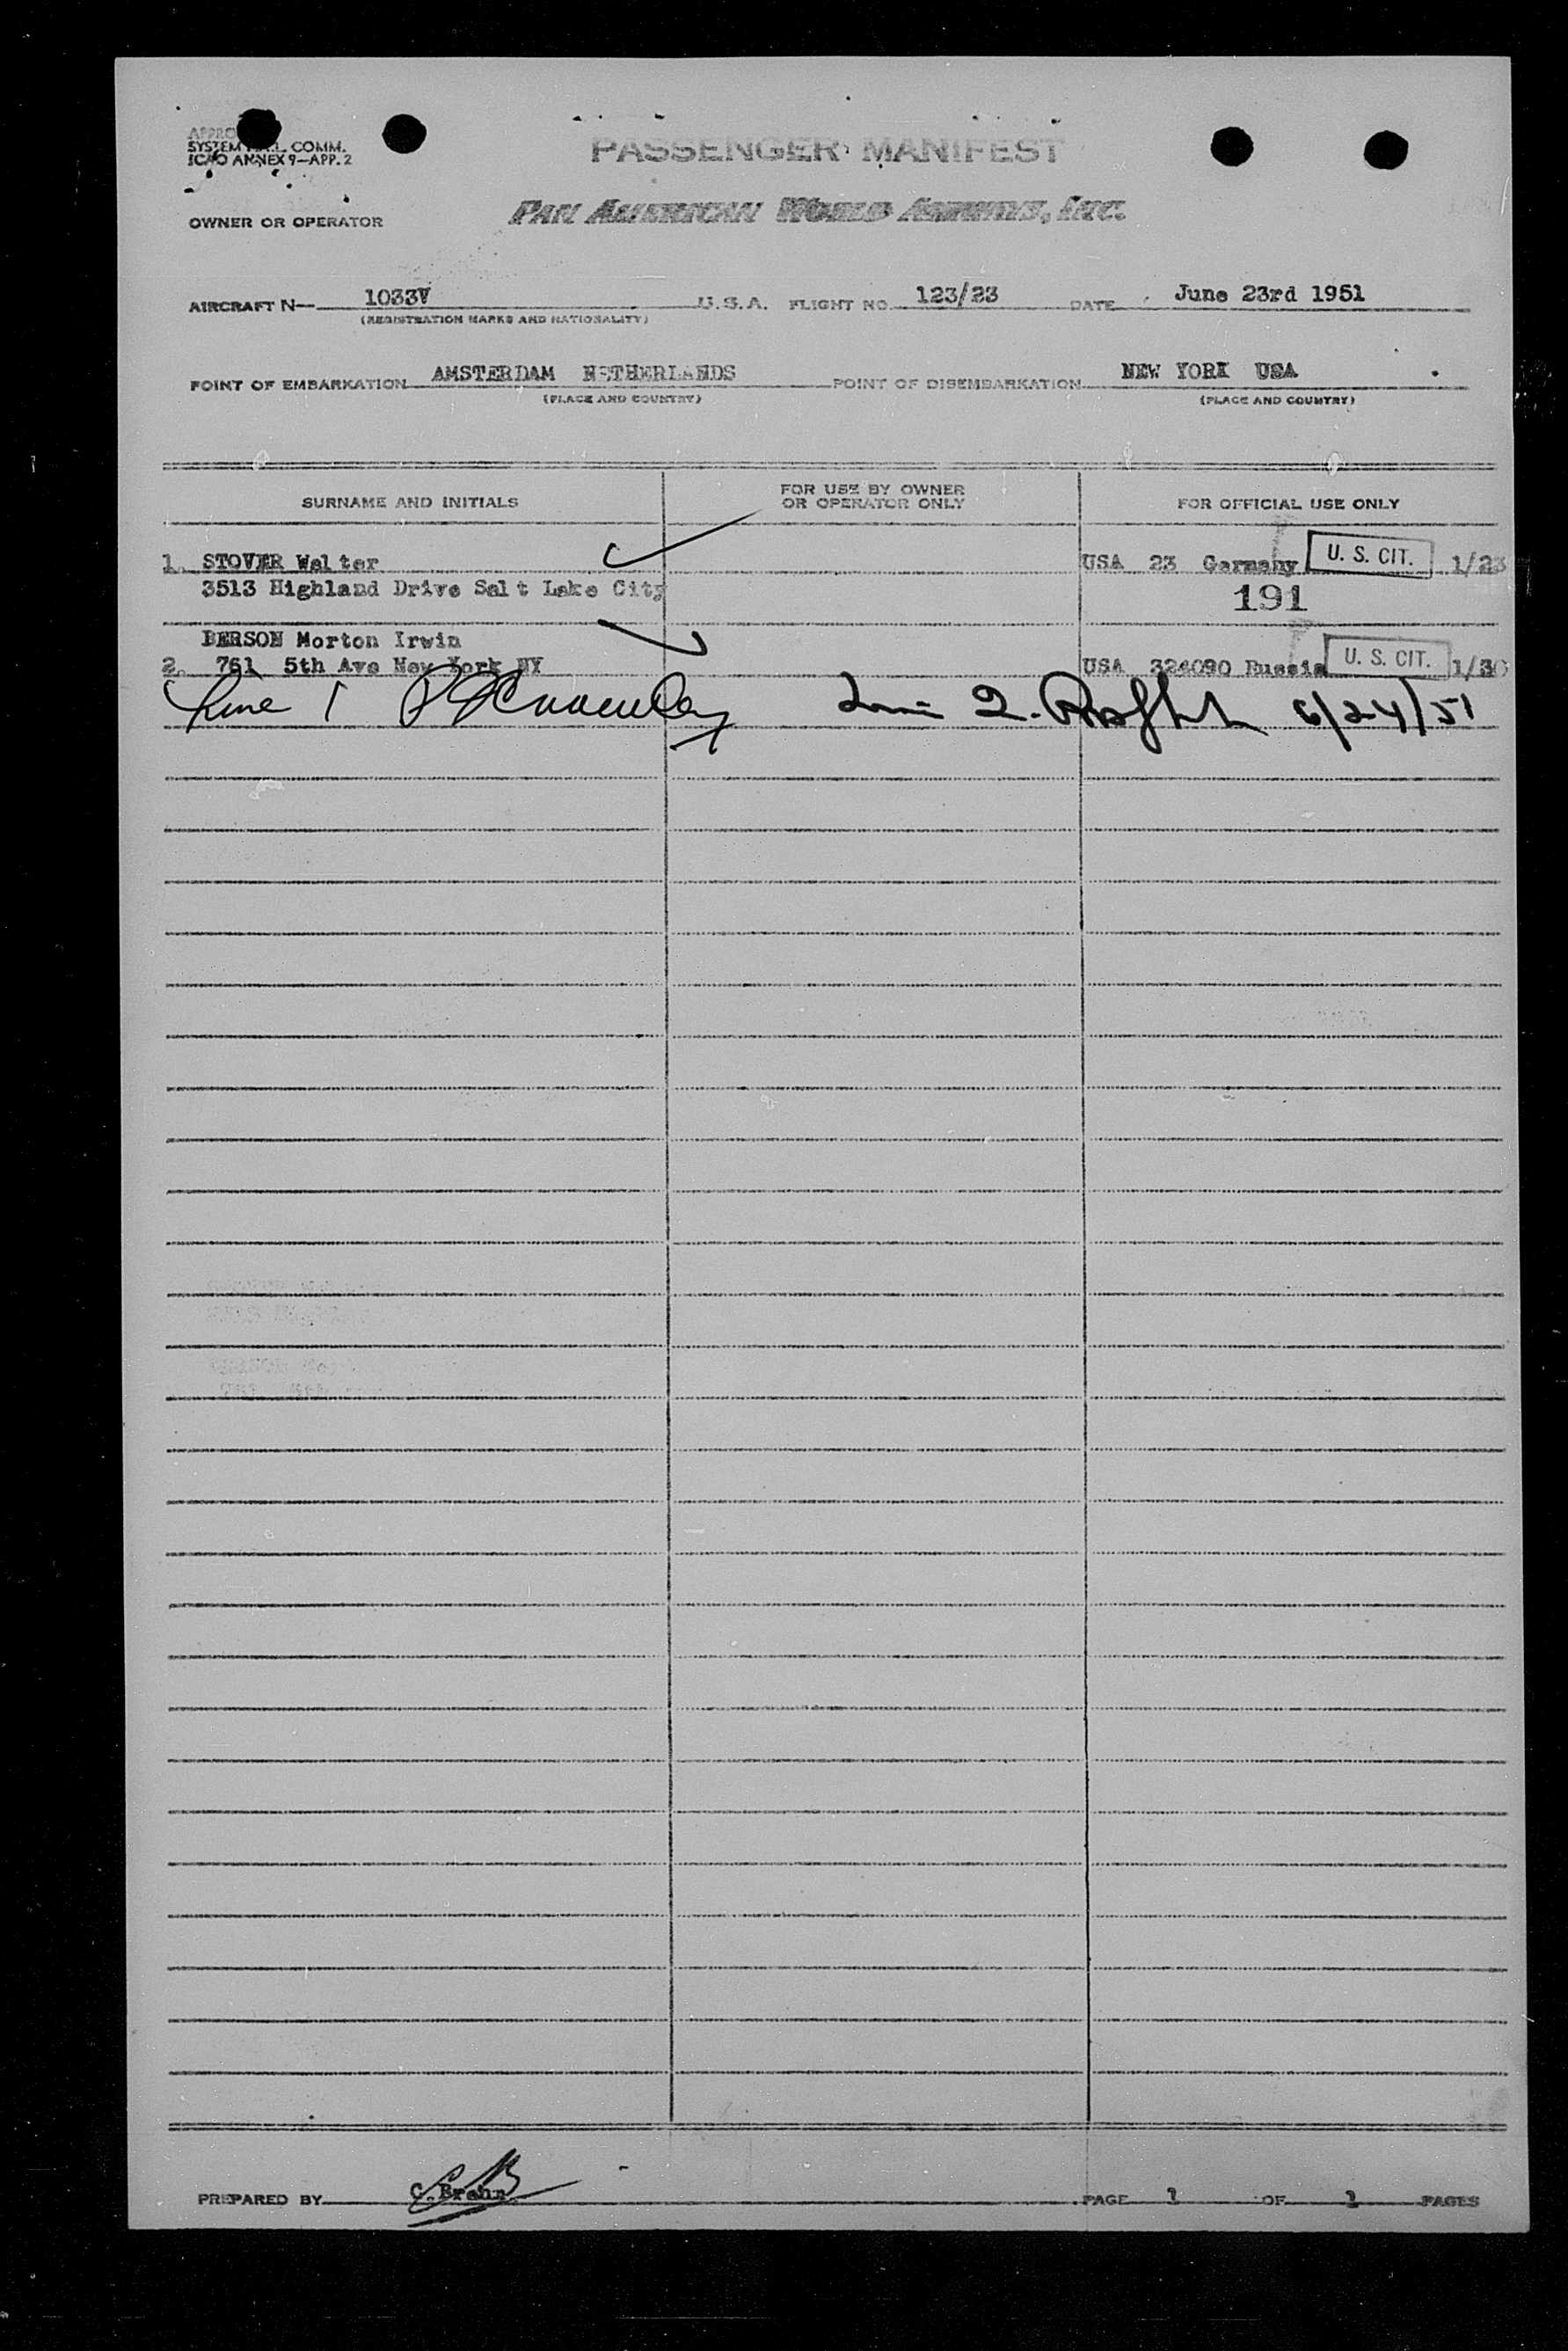 SYSTEM COMM.
ICAO ANNEX 9—APP. 2
PASSENGER MANIFEST
OWNER OR OPERATOR
PAN AMERICAN WORLD AIRWAYS, INC.
AIRCRAFT N— 1033V U.S.A. FLIGHT NO. 123/23 DATE June 23rd 1951
(REGISTRATION MARKS AND NATIONALITY)
POINT OF EMBARKATION AMSTERDAM NETHERLANDS POINT OF DISEMBARKATION NEW YORK USA
(PLACE AND COUNTRY) (PLACE AND COUNTRY)
SURNAME AND INITIALS FOR USE BY OWNER OR OPERATOR ONLY FOR OFFICIAL USE ONLY
1. STOVER Walter USA 23 Germany U. S. CIT. 1/23
3513 Highland Drive Salt Lake City 191
BERSON Morton Irwin
2. 761 5th Ave New York NY USA 324090 Russia U. S. CIT. 1/30
Line 1 Line 2. 6/24/51
PREPARED BY PAGE 1 OF 1 PAGES